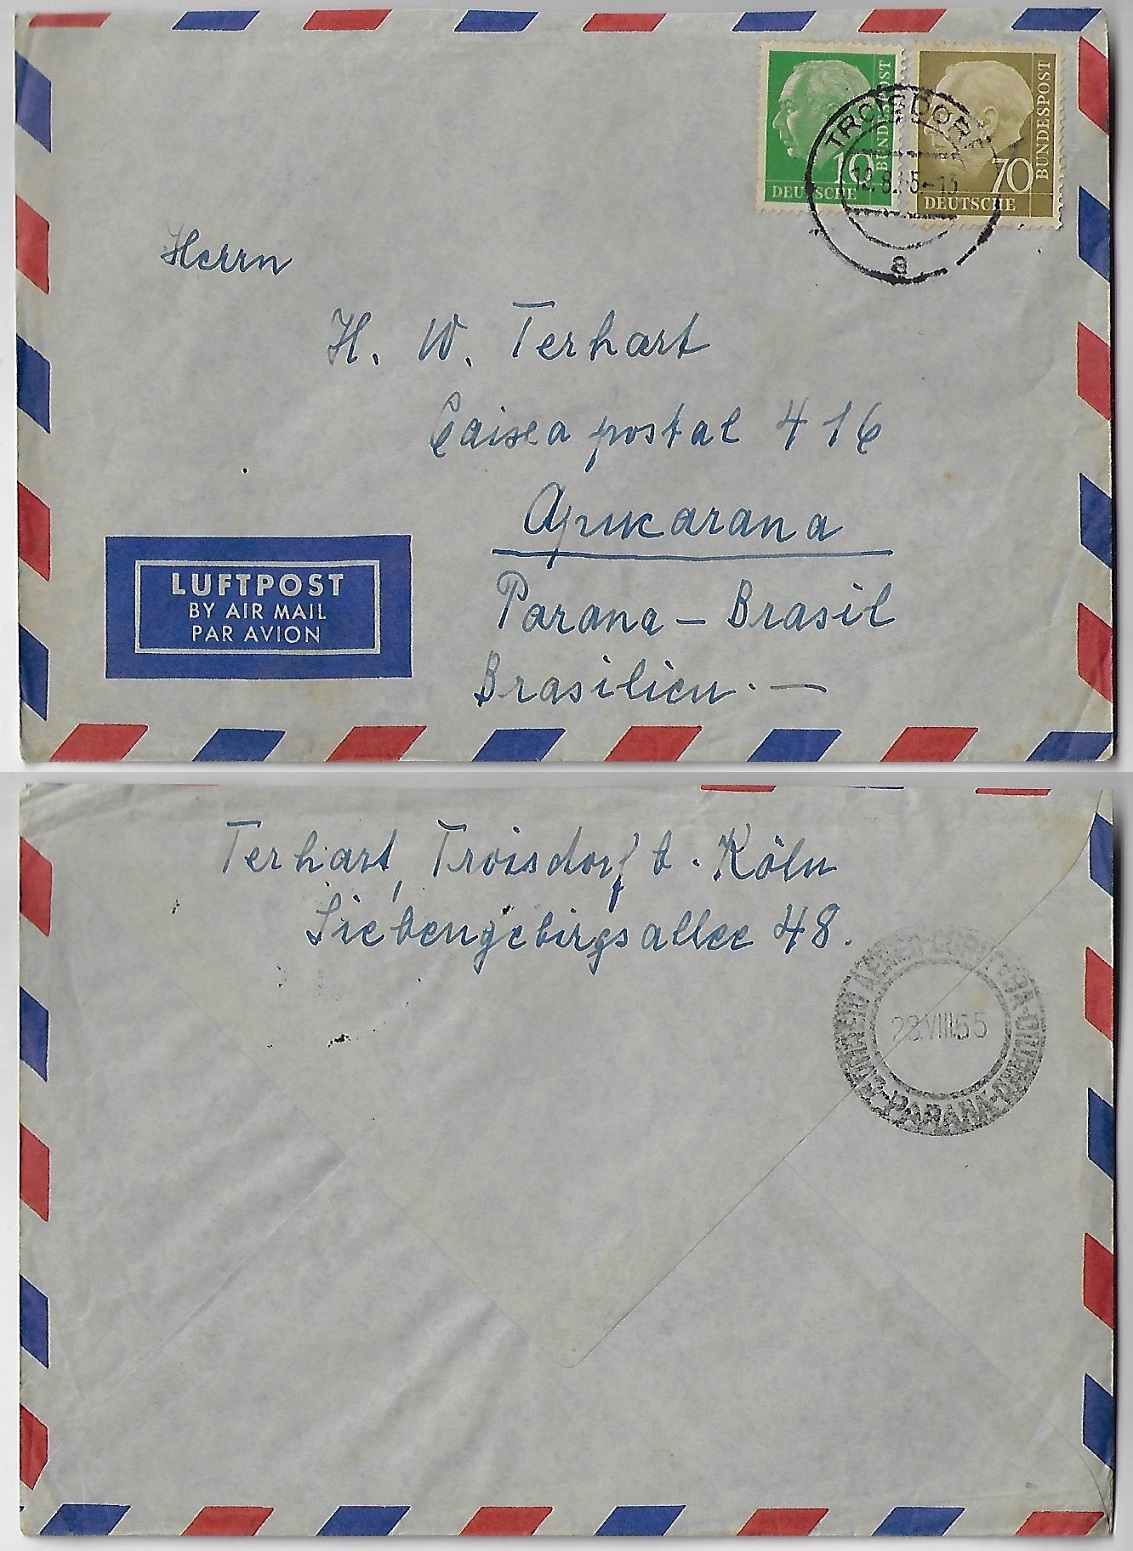 10
DEUTSCHE
BUNDESPOST
70
DEUTSCHE
BUNDESPOST
TROISDORF
12.8.55-13
a
Herrn
H. W. Terhart
Caisea postal 416
Apucarana
Parana - Brasil
Brasilien. -
LUFTPOST
BY AIR MAIL
PAR AVION
Terhart, Troisdorf b. Köln
Siebengebirgsallee 48.
AEREO-CORITIBA-DIURNO
-PARANÁ-
VIII.55